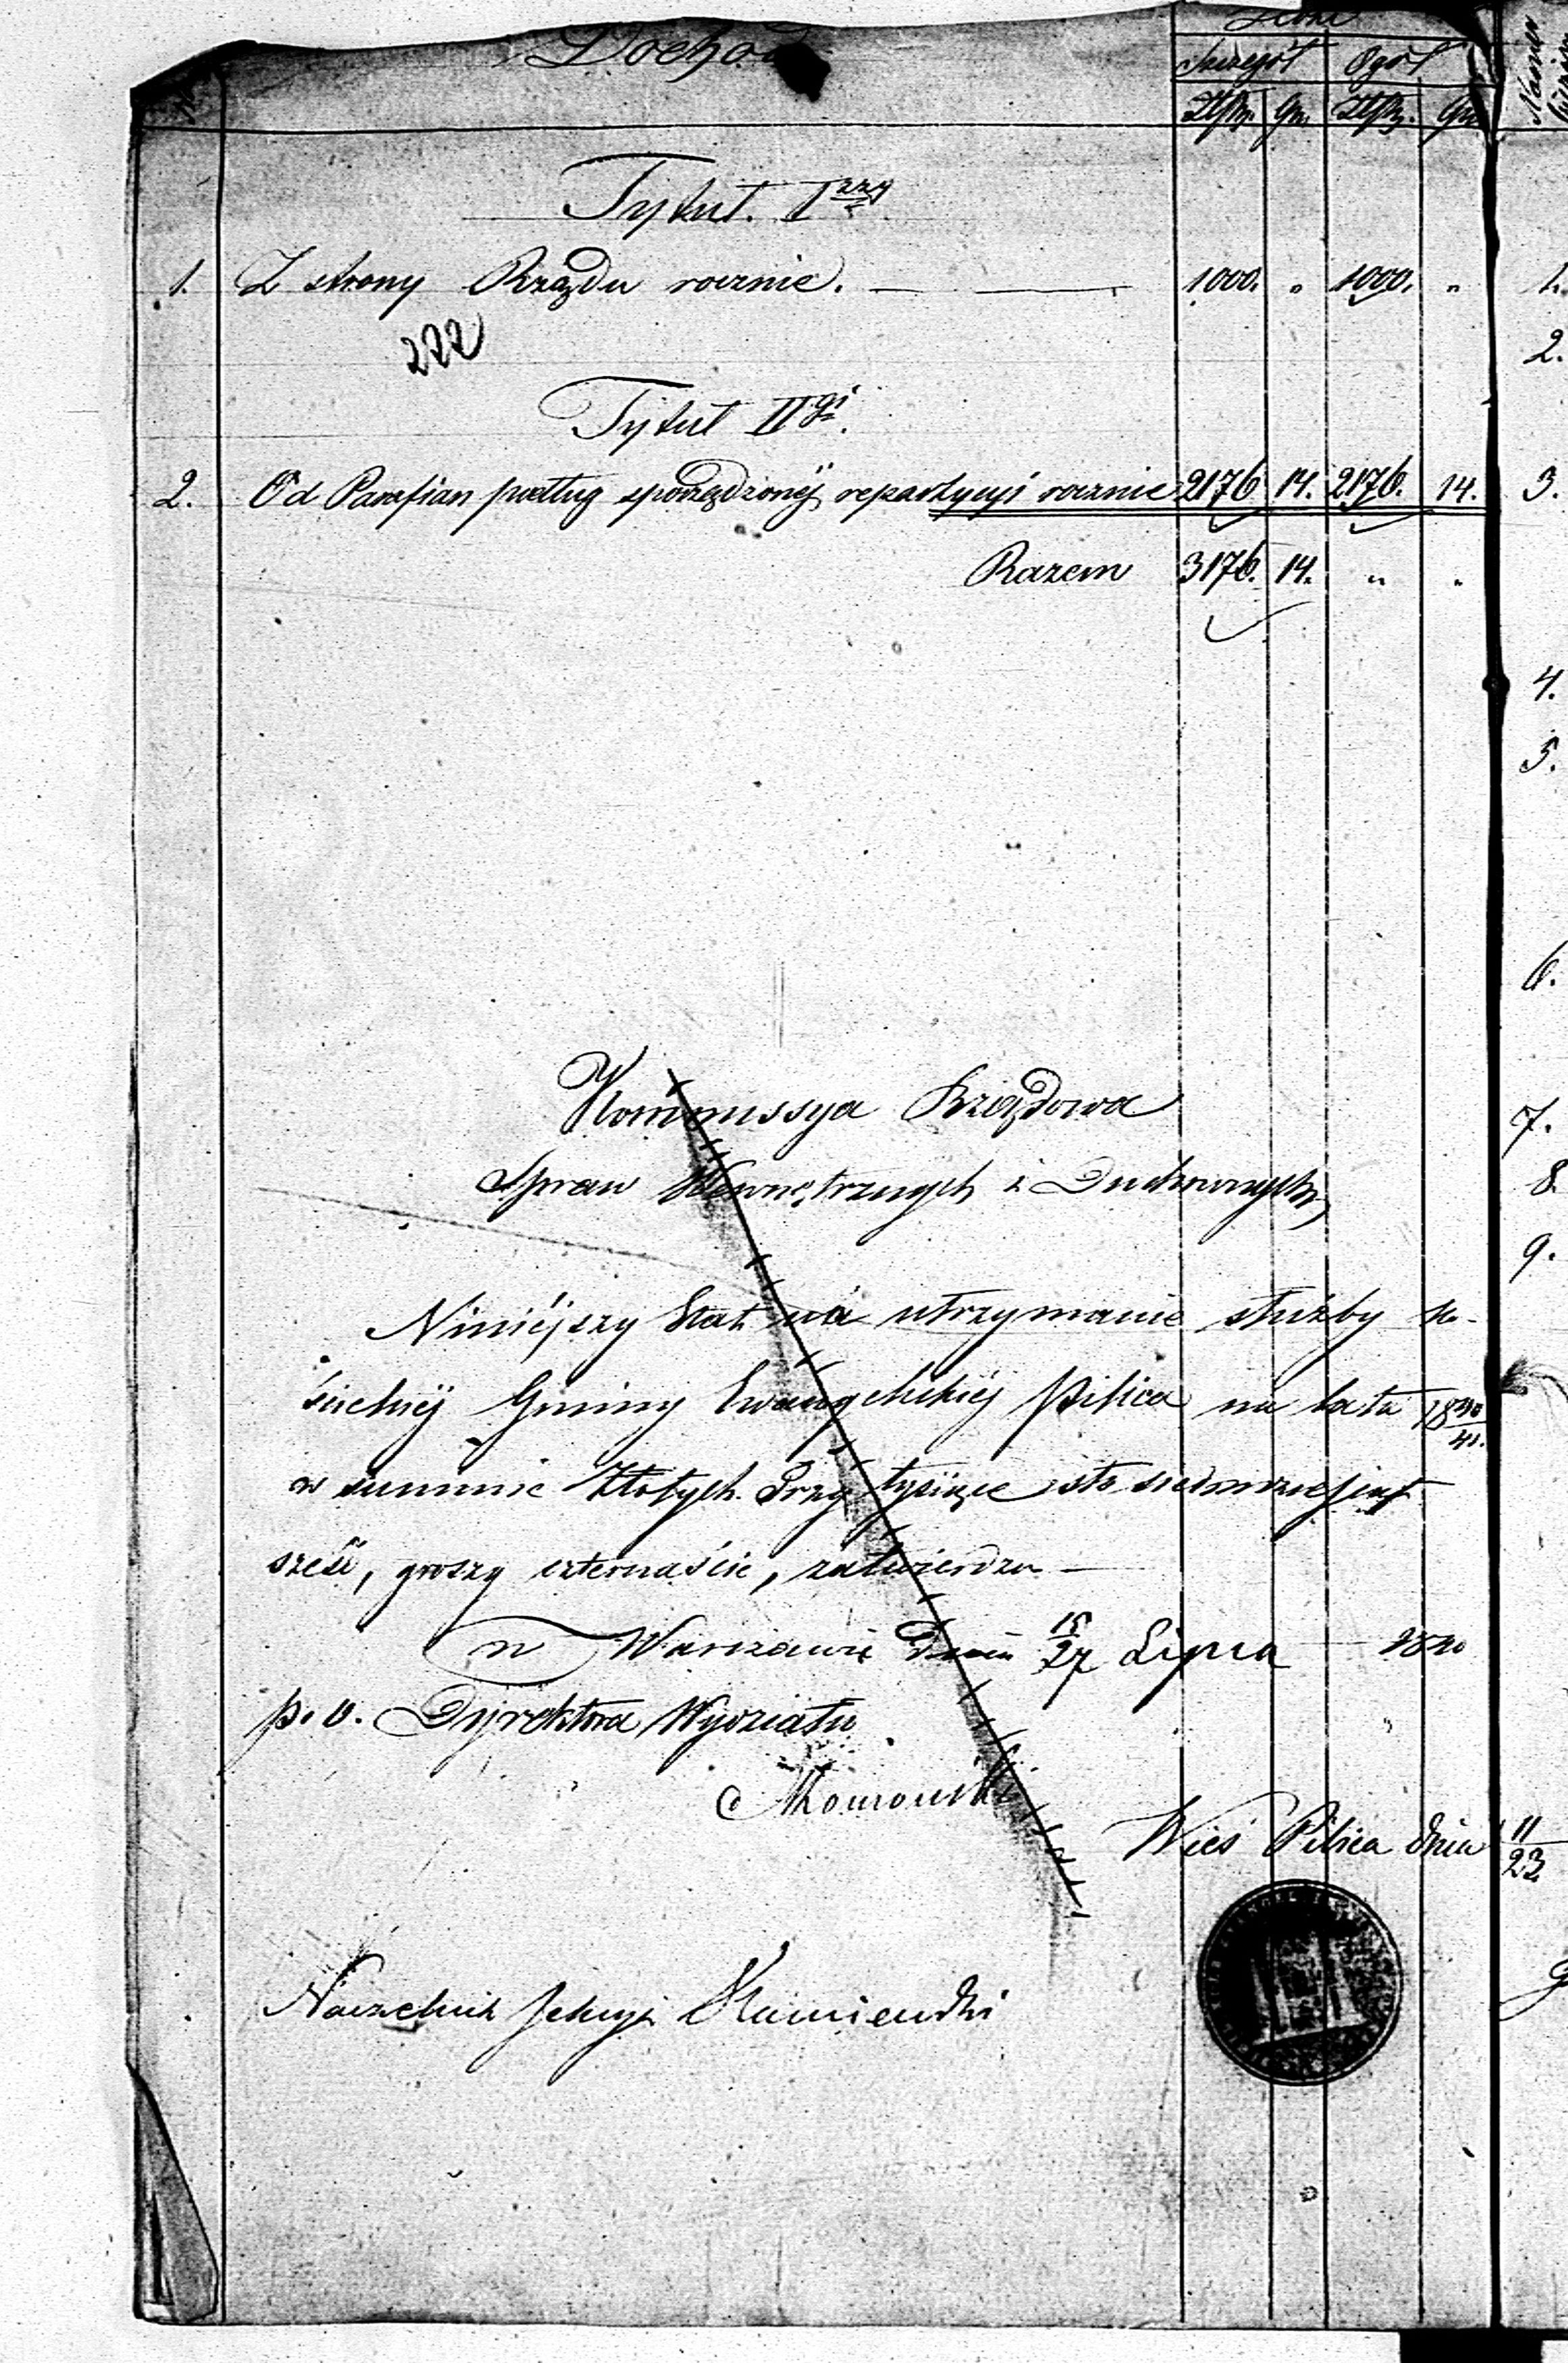 Dochod
Szczegół Ogół
Złp. Gr. Złp. Gr.
Tytuł. I szy
1. Z strony Rządu rocznie. 1000. " 1000. "
222
Tytuł II gi.
2. Od Parafian podług sporządzonéj repartycyi rocznie 2176 14. 2176. 14.
Razem 3176. 14. " "
Kommissya Rządowa
Spraw Wewnętrznych i Duchownych,
Niniéjszy Etat na utrzymanie służby Ko-
ścielnéj Gminy Ewangelickiéj Pilica na lata 18 40/41.
w summie Złotych Trzy tysiące sto siedmdziesiąt
sześć, groszy czternaście, zatwierdza —
w Warszawie Dnia 15/27 Lipca 1840
p.o. Dyrektora Wydziału
Wieś Pilica dnia 11/23
Naczelnik Sekcyi Kamieński
1.
2.
3.
4.
5.
6.
7.
8.
9.